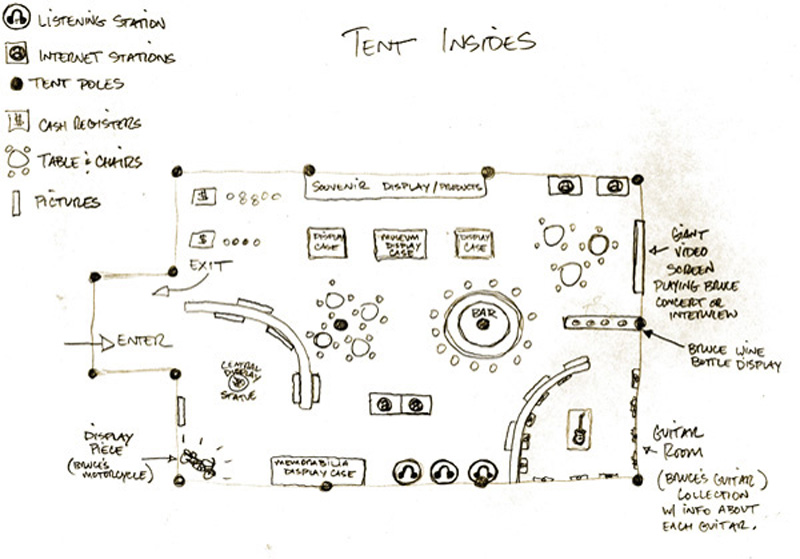 TENT INSIDES
LISTENING STATION
INTERNET STATIONS
TENT POLES
$ CASH REGISTERS
TABLE & CHAIRS
PICTURES
SOUVENIR DISPLAY/PRODUCTS
$
$
DISPLAY
CASE
MUSEUM
DISPLAY
CASE
DISPLAY
CASE
EXIT
ENTER
CENTRAL
DISPLAY
STATUE
BAR
GIANT
VIDEO
SCREEN
PLAYING BRUCE
CONCERT OR
INTERVIEW
BRUCE WINE
BOTTLE DISPLAY
DISPLAY
PIECE
(BRUCE'S
MOTORCYCLE)
MEMORABILIA
DISPLAY CASE
GUITAR
ROOM
(BRUCE'S GUITAR)
COLLECTION
W/ INFO ABOUT
EACH GUITAR.